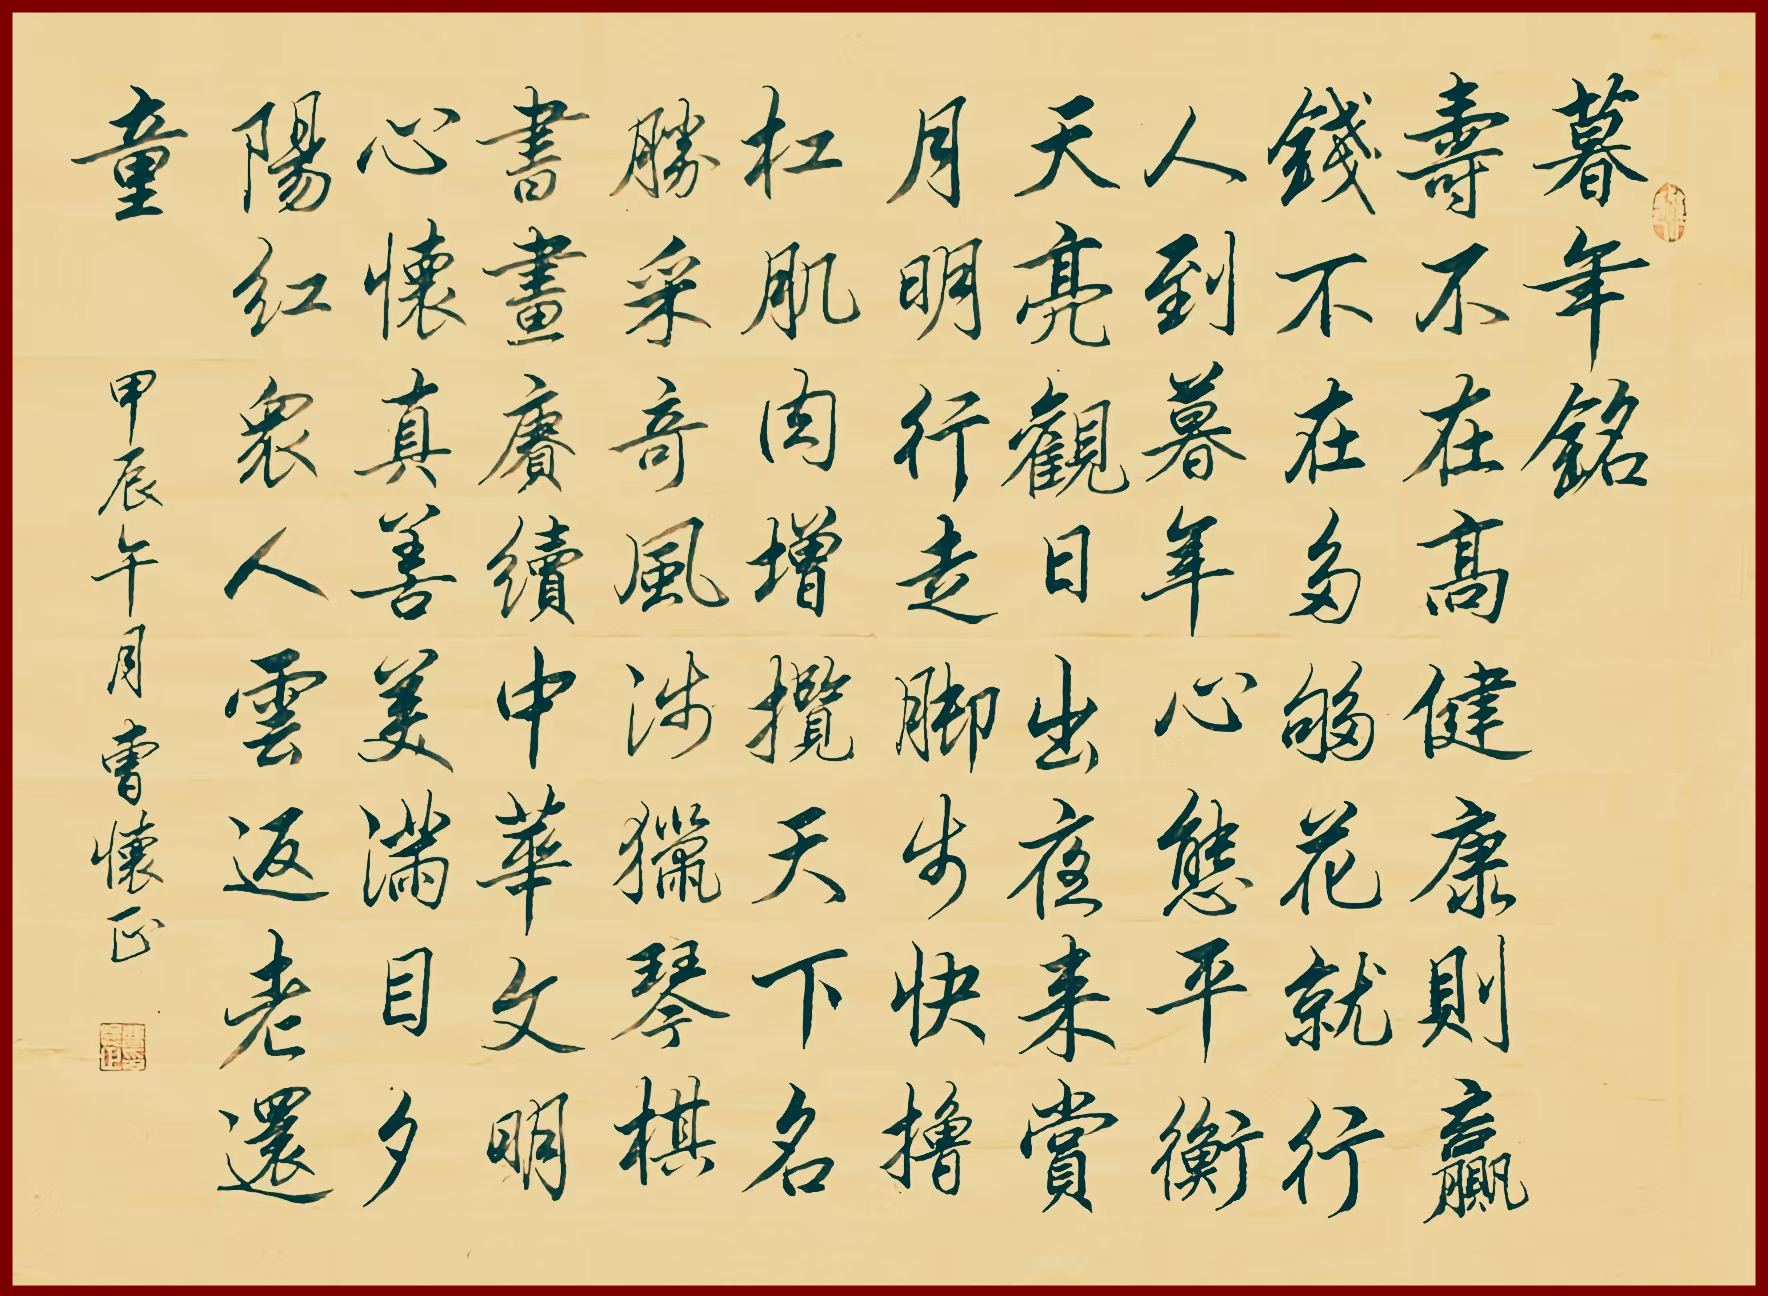 暮年銘
壽不在高健康則贏
錢不在多够花就行
人到暮年心態平衡
天亮觀日出夜来賞
月明行走脚步快擼
杠肌肉增攬天下名
勝采奇風涉獵琴棋
書畫賡續中華文明
心懷真善美滿目夕
陽紅衆人雲返老還
童
甲辰午月曹懷正